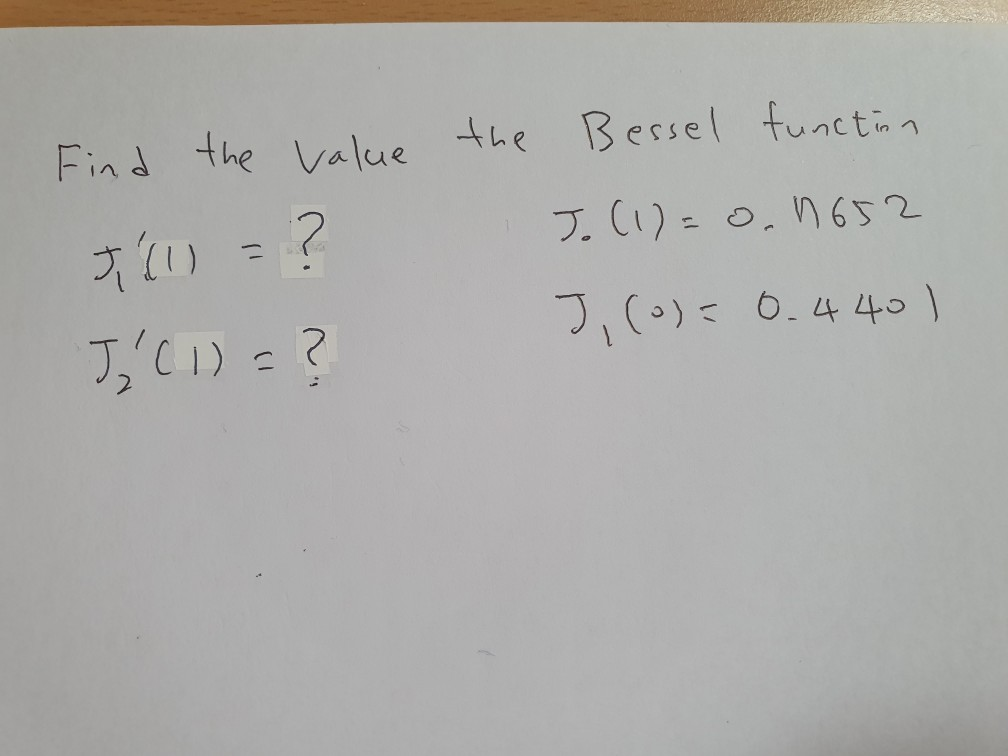 Find the Value the Bessel function
J₁'(1) = ? J₀(1) = 0.7652
J₂'(1) = ? J₁(0) = 0.4401